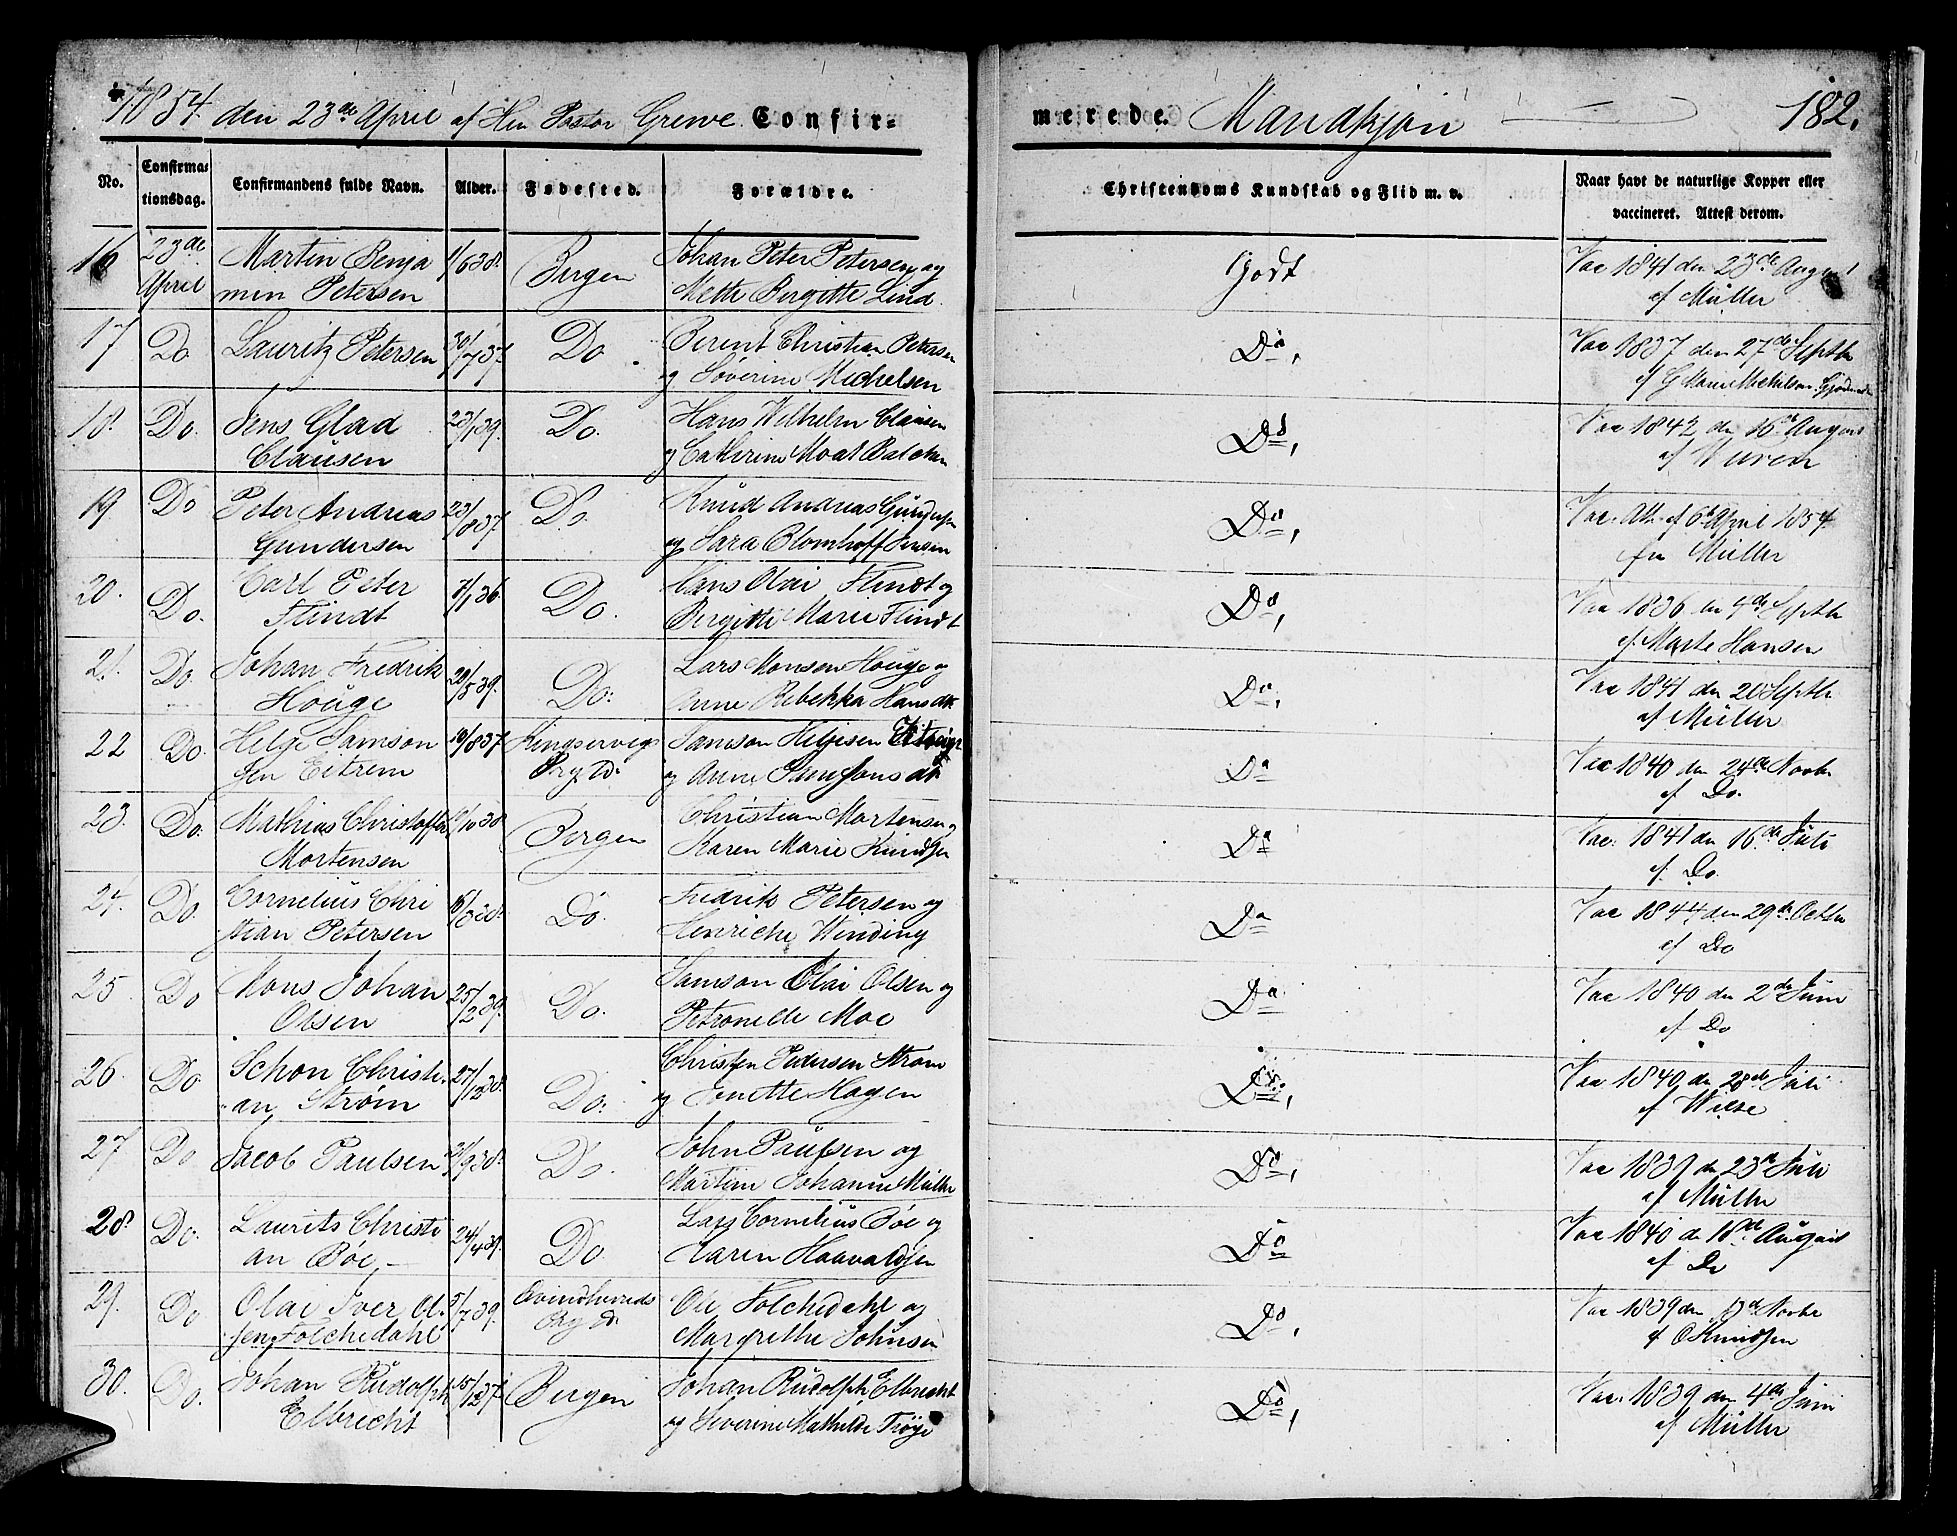 1854 den 23de April af Herr Pastor Greve Confir-
merede. Mandkjøn 182.
No. Confirmationsdag. Confirmandens fulde Navn. Alder. Fødested. Forældre. Christendoms Kundskab og Flid m. v. Naar havt de naturlige Kopper eller vaccineret. Attest derom.
16 23de April Martin Benja 1/6 38. Bergen Johan Peter Petersen og Godt Vac 1841 den 23de August
min Petersen Mette Birgitte Lind. af Müller
17 Do Lauritz Petersen 30/7 37. Do Berent Christian Petersen Do, Vac 1837 den 27de Septbr
og Søverine Michelsen af G
18. Do. Jens Glad 23/1 39. Do. Hans Wilhelm Clausen Do, Vac 1842 den 16de August
Clausen og Cathrine Moat Balchen af
19 Do Peter Andreas 23/8 37. Do. Knud Andreas Gundersen Do, Vac. Att. af 6te April 1854
Gundersen og Sara Blomhoff Jensen fra Müller
20. Do. Carl Peter 7/1 36. Do. Hans Olai Flindt og Do, Vac 1836 den 4de Septbr
Flindt Birgitte Marie Flindt af Marte Hansen
21. Do. Johan Fredrik 20/5 39. Do. Lars Monsen Houge og Do, Vac 1841 den 20 Septbr
Houge Anne Rebekka Hansdtr af Müller
22 Do. Helge Samson 10/8 37. Kingservigs Samson Helgesen Do Vac 1840 den 24de Novbr
sen Eitrem Prgld. og Anne Samsonsdtr af Do.
23. Do. Mathias Christoffer 11/10 38 Bergen Christian Mortensen og Do Vac: 1841 den 16de Juli
Mortensen Karen Marie Knudsen af Do.
24. Do. Cornelius Chri 16/3 38. Do. Fredrik Petersen og Do Vac 1844 den 29de Octbr
stian Petersen Henriche Winding af Do
25. Do Mons Johan 25/2 39. Do. Samson Olai Olsen og Do Vac 1840 den 2de Juni
Olsen Petronelle Moe af Do
26. Do Schon Christi- 27/12 38. Do. Christen Pedersen Strøm Do, Vac 1840 den 28de Juli
an Strøm og Jonette Hagen af Wiese
27. Do Jacob Paulsen 21/9 38. Do. John Paulsen og Do, Vac 1839 den 23de Juli
Martine Johanne Müller af Müller
28. Do. Laurits Christi 24/4 39. Do. Lars Cornelius Bøe og Do Vac 1840 den 18de August
an Bøe, Karen Haavaldsen af Do
29. Do Olai Iver Ol 5/7 39. Qvindherreds Ole Folchedahl og Do, Vac 1839 den Novbr
sen Folchedahl Prgld. Margrethe Johnsen af O Knudsen
30. Do. Johan Rudolph 15/12 37. Bergen Johan Rudolph Elbrecht Do, Vac. 1839 den 4de Juni
Elbrecht og Severine Mathilde Trøye af Müller